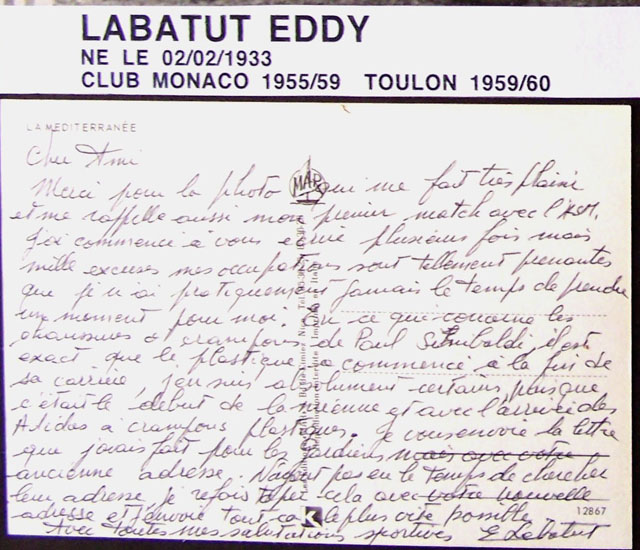 LABATUT EDDY
NE LE 02/02/1933
CLUB MONACO 1955/59 TOULON 1959/60
LA MEDITERRANÉE
Cher Ami
MAR
Merci pour la photo qui me fait très plaisir
et me rappelle aussi mon premier match avec l'ASM.
J'ai commencé à vous écrire plusieurs fois mais
mille excuses mes occupations sont tellement prenantes
que je n'ai pratiquement jamais le temps de prendre
un moment pour moi. En ce qui concerne les
chaussures à crampons de Paul Sinibaldi, il est
exact que le plastique a commencé à la fin de
sa carrière, j'en suis absolument certain puisque
c'était le début de la mienne et avec l'arrivée des
Adidas à crampons plastiques. Je vous envoie la lettre
que j'avais fait pour les mais avec votre
ancienne adresse. N'ayant pas eu le temps de chercher
leur adresse je refais cela avec votre nouvelle
adresse et j'envoie tout ça le plus vite possible.
K
12867
Avec toutes mes salutations sportives E. Labatut